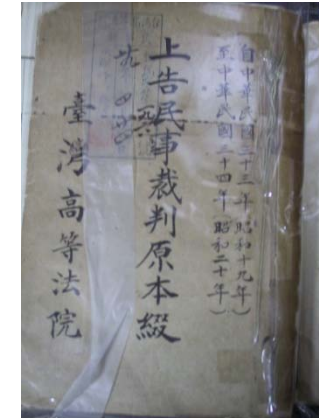 自中華民國三十三年（昭和十九年）
至中華民國三十四年（昭和二十年）
上告民事裁判原本綴
臺灣高等法院